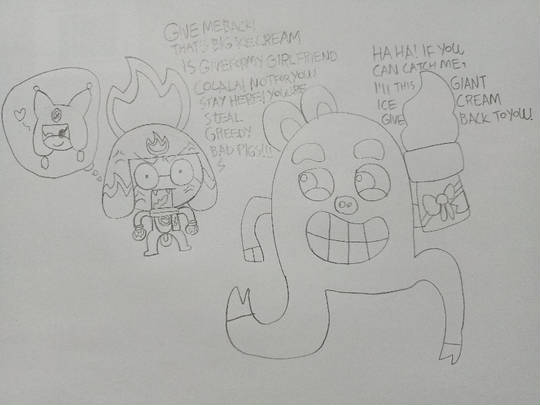 GIVE ME BACK!
THAT'S BIG ICE CREAM
IS GIVE FOR MY GIRLFRIEND
COLALA! NOT FOR YOU!
STAY HERE! YOU'RE
STEAL
GREEDY
BAD PIGS!!!
S
HA HA! IF YOU
CAN CATCH ME,
I'll THIS GIANT
ICE CREAM
GIVE BACK TO YOU!